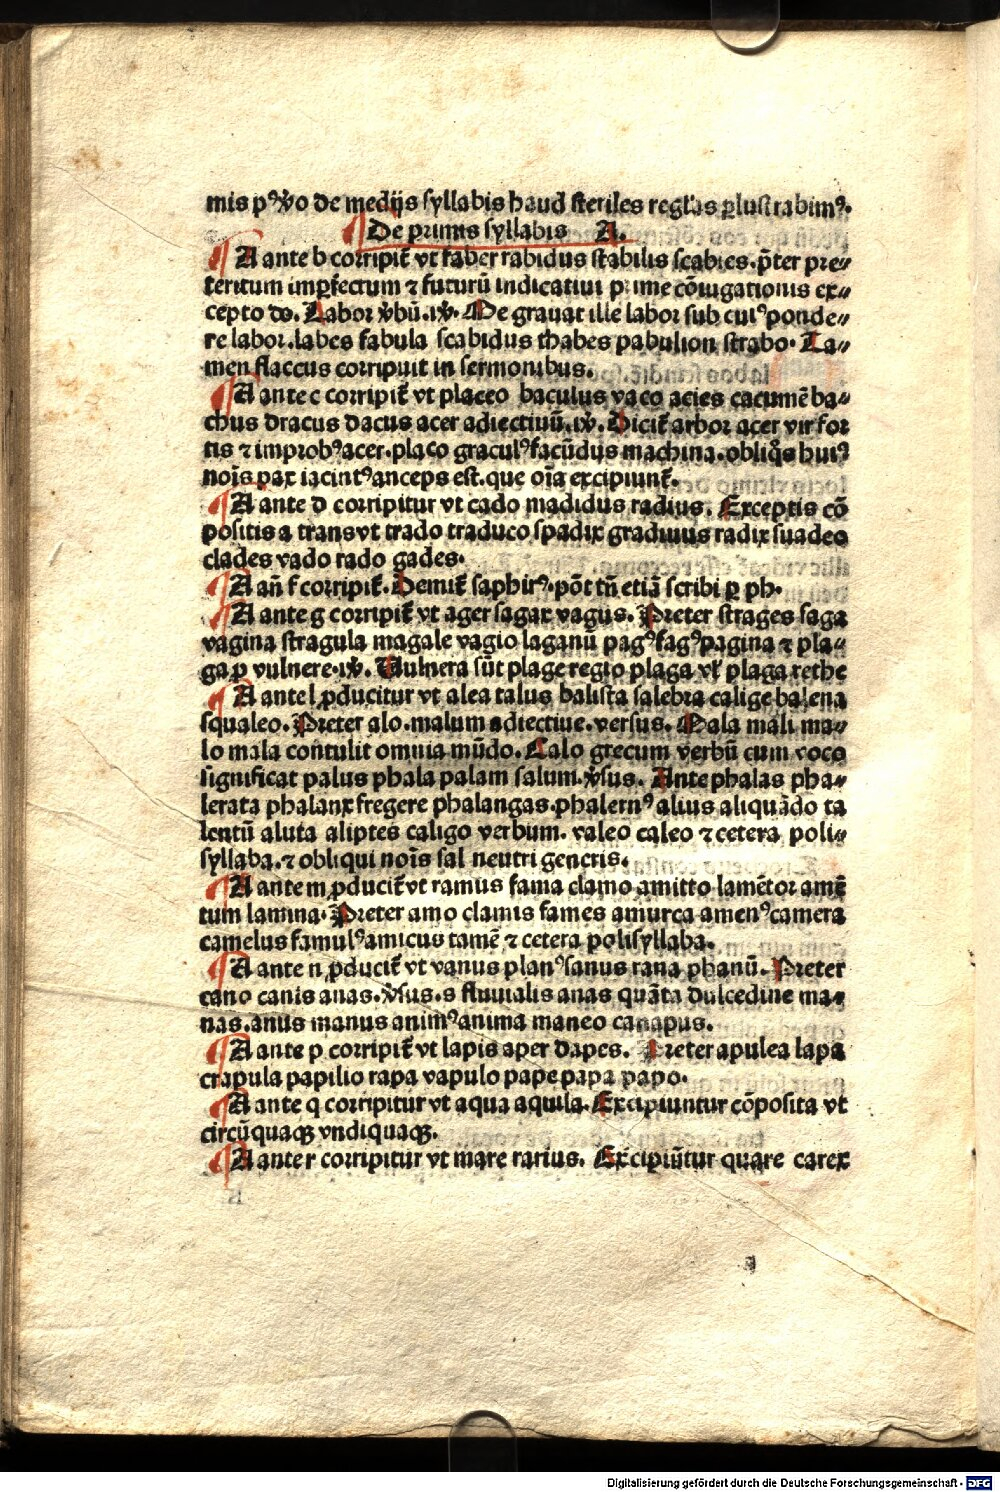 mis pꝰ ꝟo de medijs syllabis haud steriles regl'as ꝑlustrabimꝰ.
De primis syllabis A.
A ante b corripit̃ vt faber rabidus stabilis scabies. p̄ter pre⸗
teritum imꝑfectum ⁊ futurũ indicatiui prime cõiugationis ex⸗
cepto do. Labor ꝟbũ. ꝟ. Me grauat ille labor sub cuiꝰ ponde⸗
re labor. labes fabula scabidus thabes pabulion strabo. La⸗
men flaccus corripuit in sermonibus.
A ante c corripit̃ vt placeo baculus vaco acies cacumẽ ba⸗
chus dracus dacus acer adiectiuũ. ꝟ. Dicit̃ arbor acer vir for
tis ⁊ improbꝰ acer. placo graculꝰ facũdus machina. obliq̃s huiꝰ
nois̃ pax iacintꝰ anceps est. que oĩa excipiunt̃.
A ante d corripitur vt cado madidus radius. Exceptis cõ
positis a trans vt trado traduco spadix gradiuus radix suadeo
clades vado rado gades.
A añ f corripit̃. Demit̃ saphirꝰ. põt tñ etiã scribi ꝑ ph.
A ante g corripit̃ vt ager sagax vagus. Preter strages saga
vagina stragula magale vagio laganũ pagꝰ fagꝰ pagina ⁊ pla⸗
ga ꝓ vulnere. ꝟ. Vulnera sũt plage regio plaga vl' plaga rethe
A ante l ꝓducitur vt alea talus balista salebra calige balena
squaleo. Preter alo. malum adiectiue. versus. Mala mali ma⸗
lo mala contulit omnia mũdo. Calo grecum verbũ cum voco
significat palus phala palam salum. ꝟsus. Ante phalas pha⸗
lerata phalanx fregere phalangas. phalernꝰ alius aliquãdo ta
lentũ aluta aliptes caligo verbum. valeo caleo ⁊ cetera poli⸗
syllaba. ⁊ obliqui nois̃ sal neutri generis.
A ante m ꝓducit̃ vt ramus fama clamo amitto lamẽtor amẽ
tum lamina. Preter amo clamis fames amurca amenꝰ camera
camelus famulꝰ amicus tamẽ ⁊ cetera polisyllaba.
A ante n ꝓducit̃ vt vanus planꝰ sanus rana phanũ. Preter
cano canis anas. ꝟsus. s fluuialis anas quãta dulcedine ma⸗
nas. anus manus animꝰ anima maneo canapus.
A ante p corripit̃ vt lapis aper dapes. Preter apulea lapa
crapula papilio rapa vapulo pape papa papo.
A ante q corripitur vt aqua aquila. Excipiuntur cõposita vt
circũquaqꝫ vndiquaqꝫ.
A ante r corripitur vt mare rarius. Excipiũtur quare carex
Digitalisierung gefördert durch die Deutsche Forschungsgemeinschaft - DFG